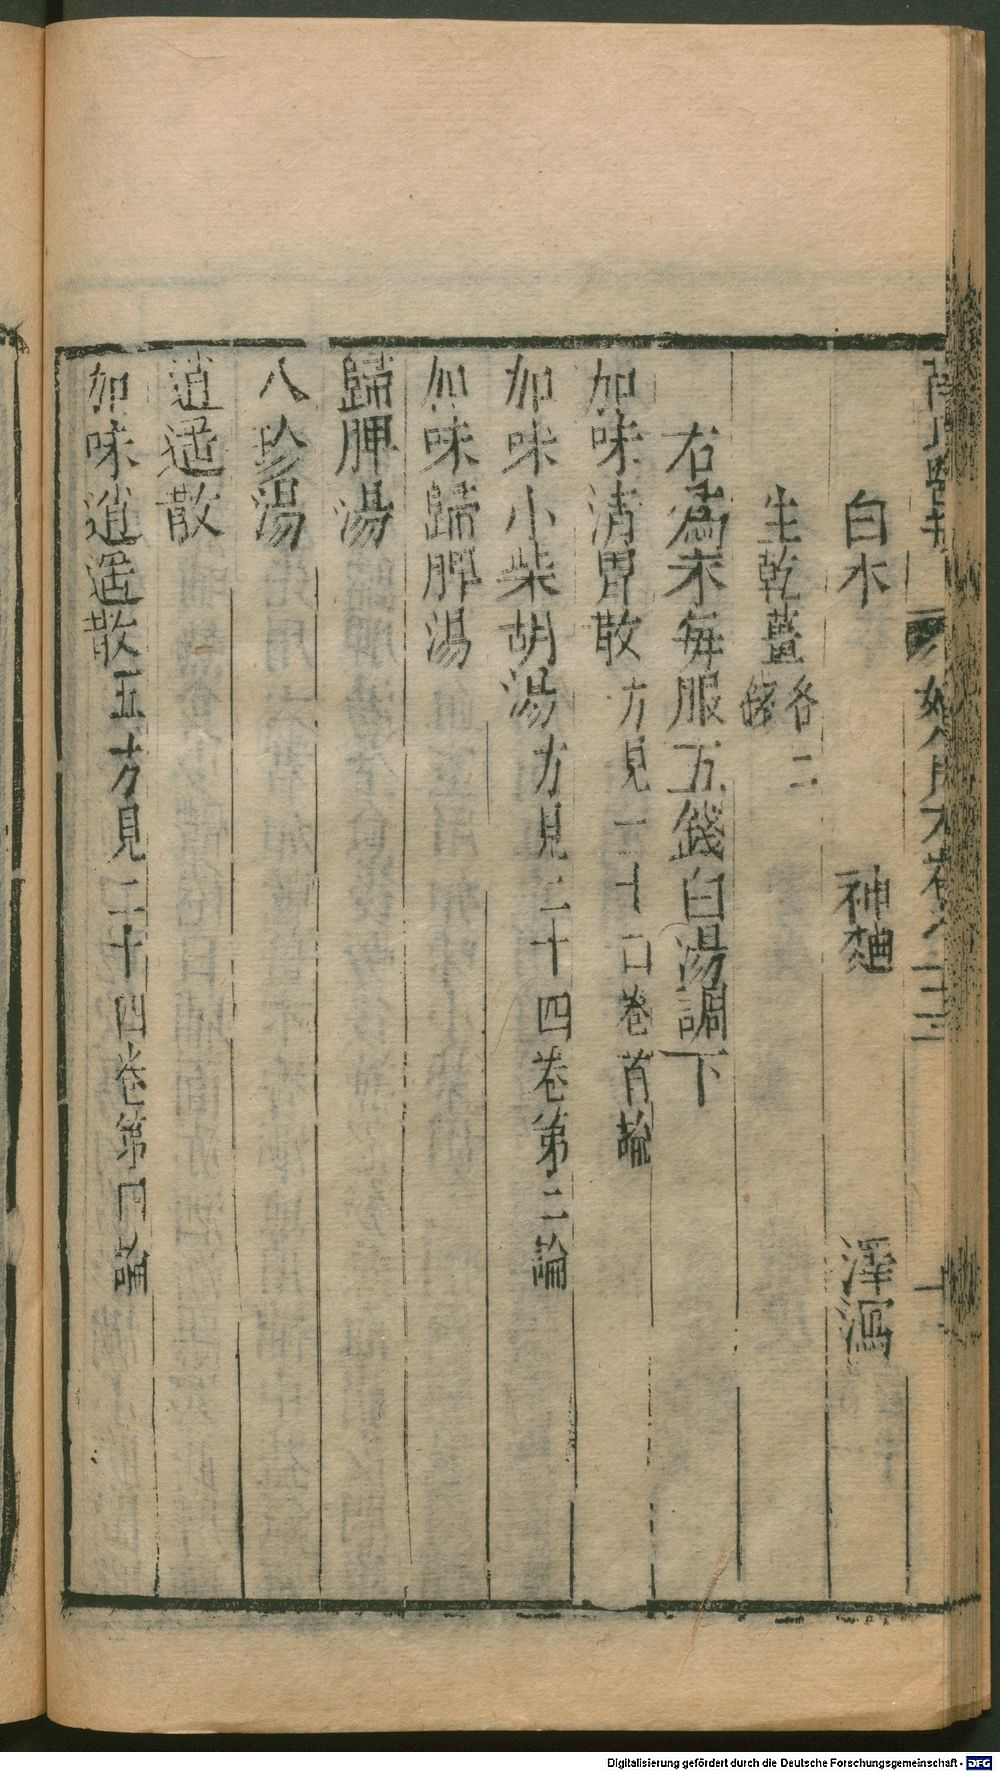 白朮 神麯 澤瀉
生乾薑各二錢
右為末每服五錢白湯調下
加味清胃散方見二十口卷首論
加味小柴胡湯方見二十四卷第二論
加味歸脾湯
歸脾湯
八珍湯
逍遥散
加味逍遥散五方見二十四卷第四論
Digitalisierung gefördert durch die Deutsche Forschungsgemeinschaft - DFG